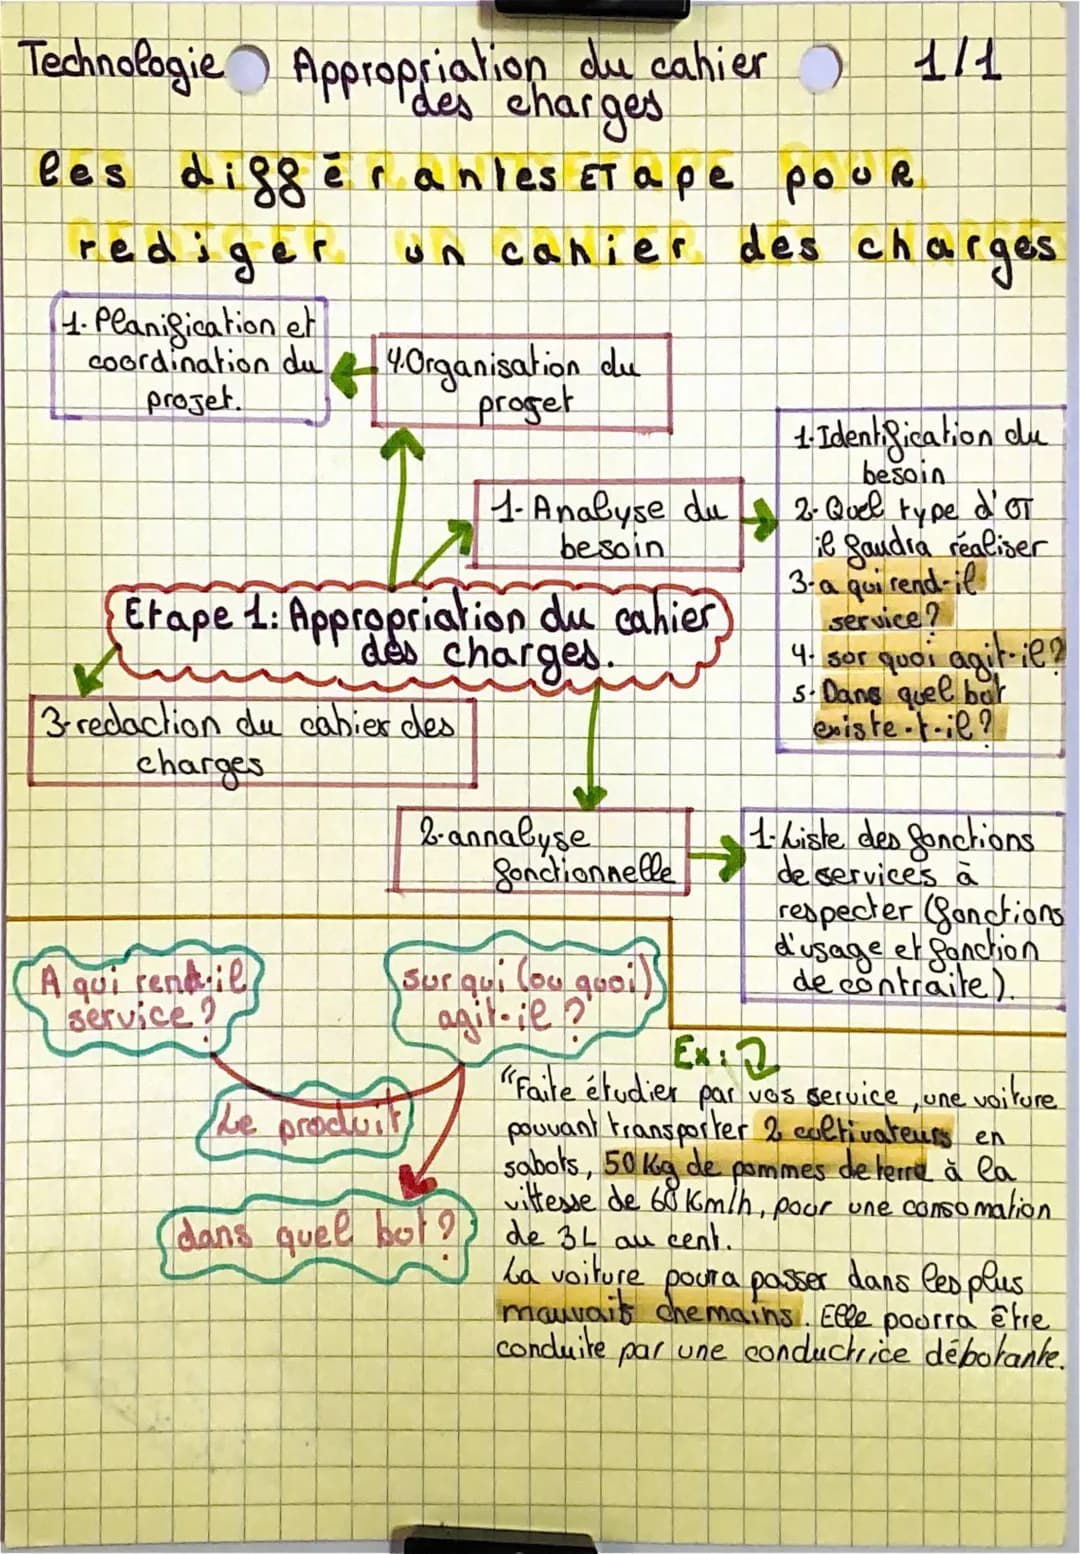 Technologie Appropriation du cahier 1/1
des charges
les différantes ETape pour
rediger un cahier des charges
1. Planification et
coordination du
projet.
4. Organisation du
projet
1- Analyse du
besoin
1- Identification du
besoin
2- Quel type d'OT
il faudra réaliser
3- a qui rend-il
service?
4. sor quoi agit-il?
5- Dans quel bot
existe-t-il?
Etape 1: Appropriation du cahier
des charges.
3- redaction du cahier des
charges
2- annalyse
fonctionnelle
1- Liste des fonctions
de services à
respecter (fonctions
d'usage et fonction
de contraite).
A qui rend-il
service?
Sur qui (ou quoi)
agit-il?
Le produit
dans quel bot?
Ex:
"Faite étudier par vos service, une voiture
pouvant transporter 2 cultivateurs en
sabots, 50 Kg de pommes de terre à la
vittesse de 60 Km/h, pour une consomation
de 3L au cent.
La voiture poura passer dans les plus
mauvait chemains. Elle poorra être
conduite par une conductrice débotante.